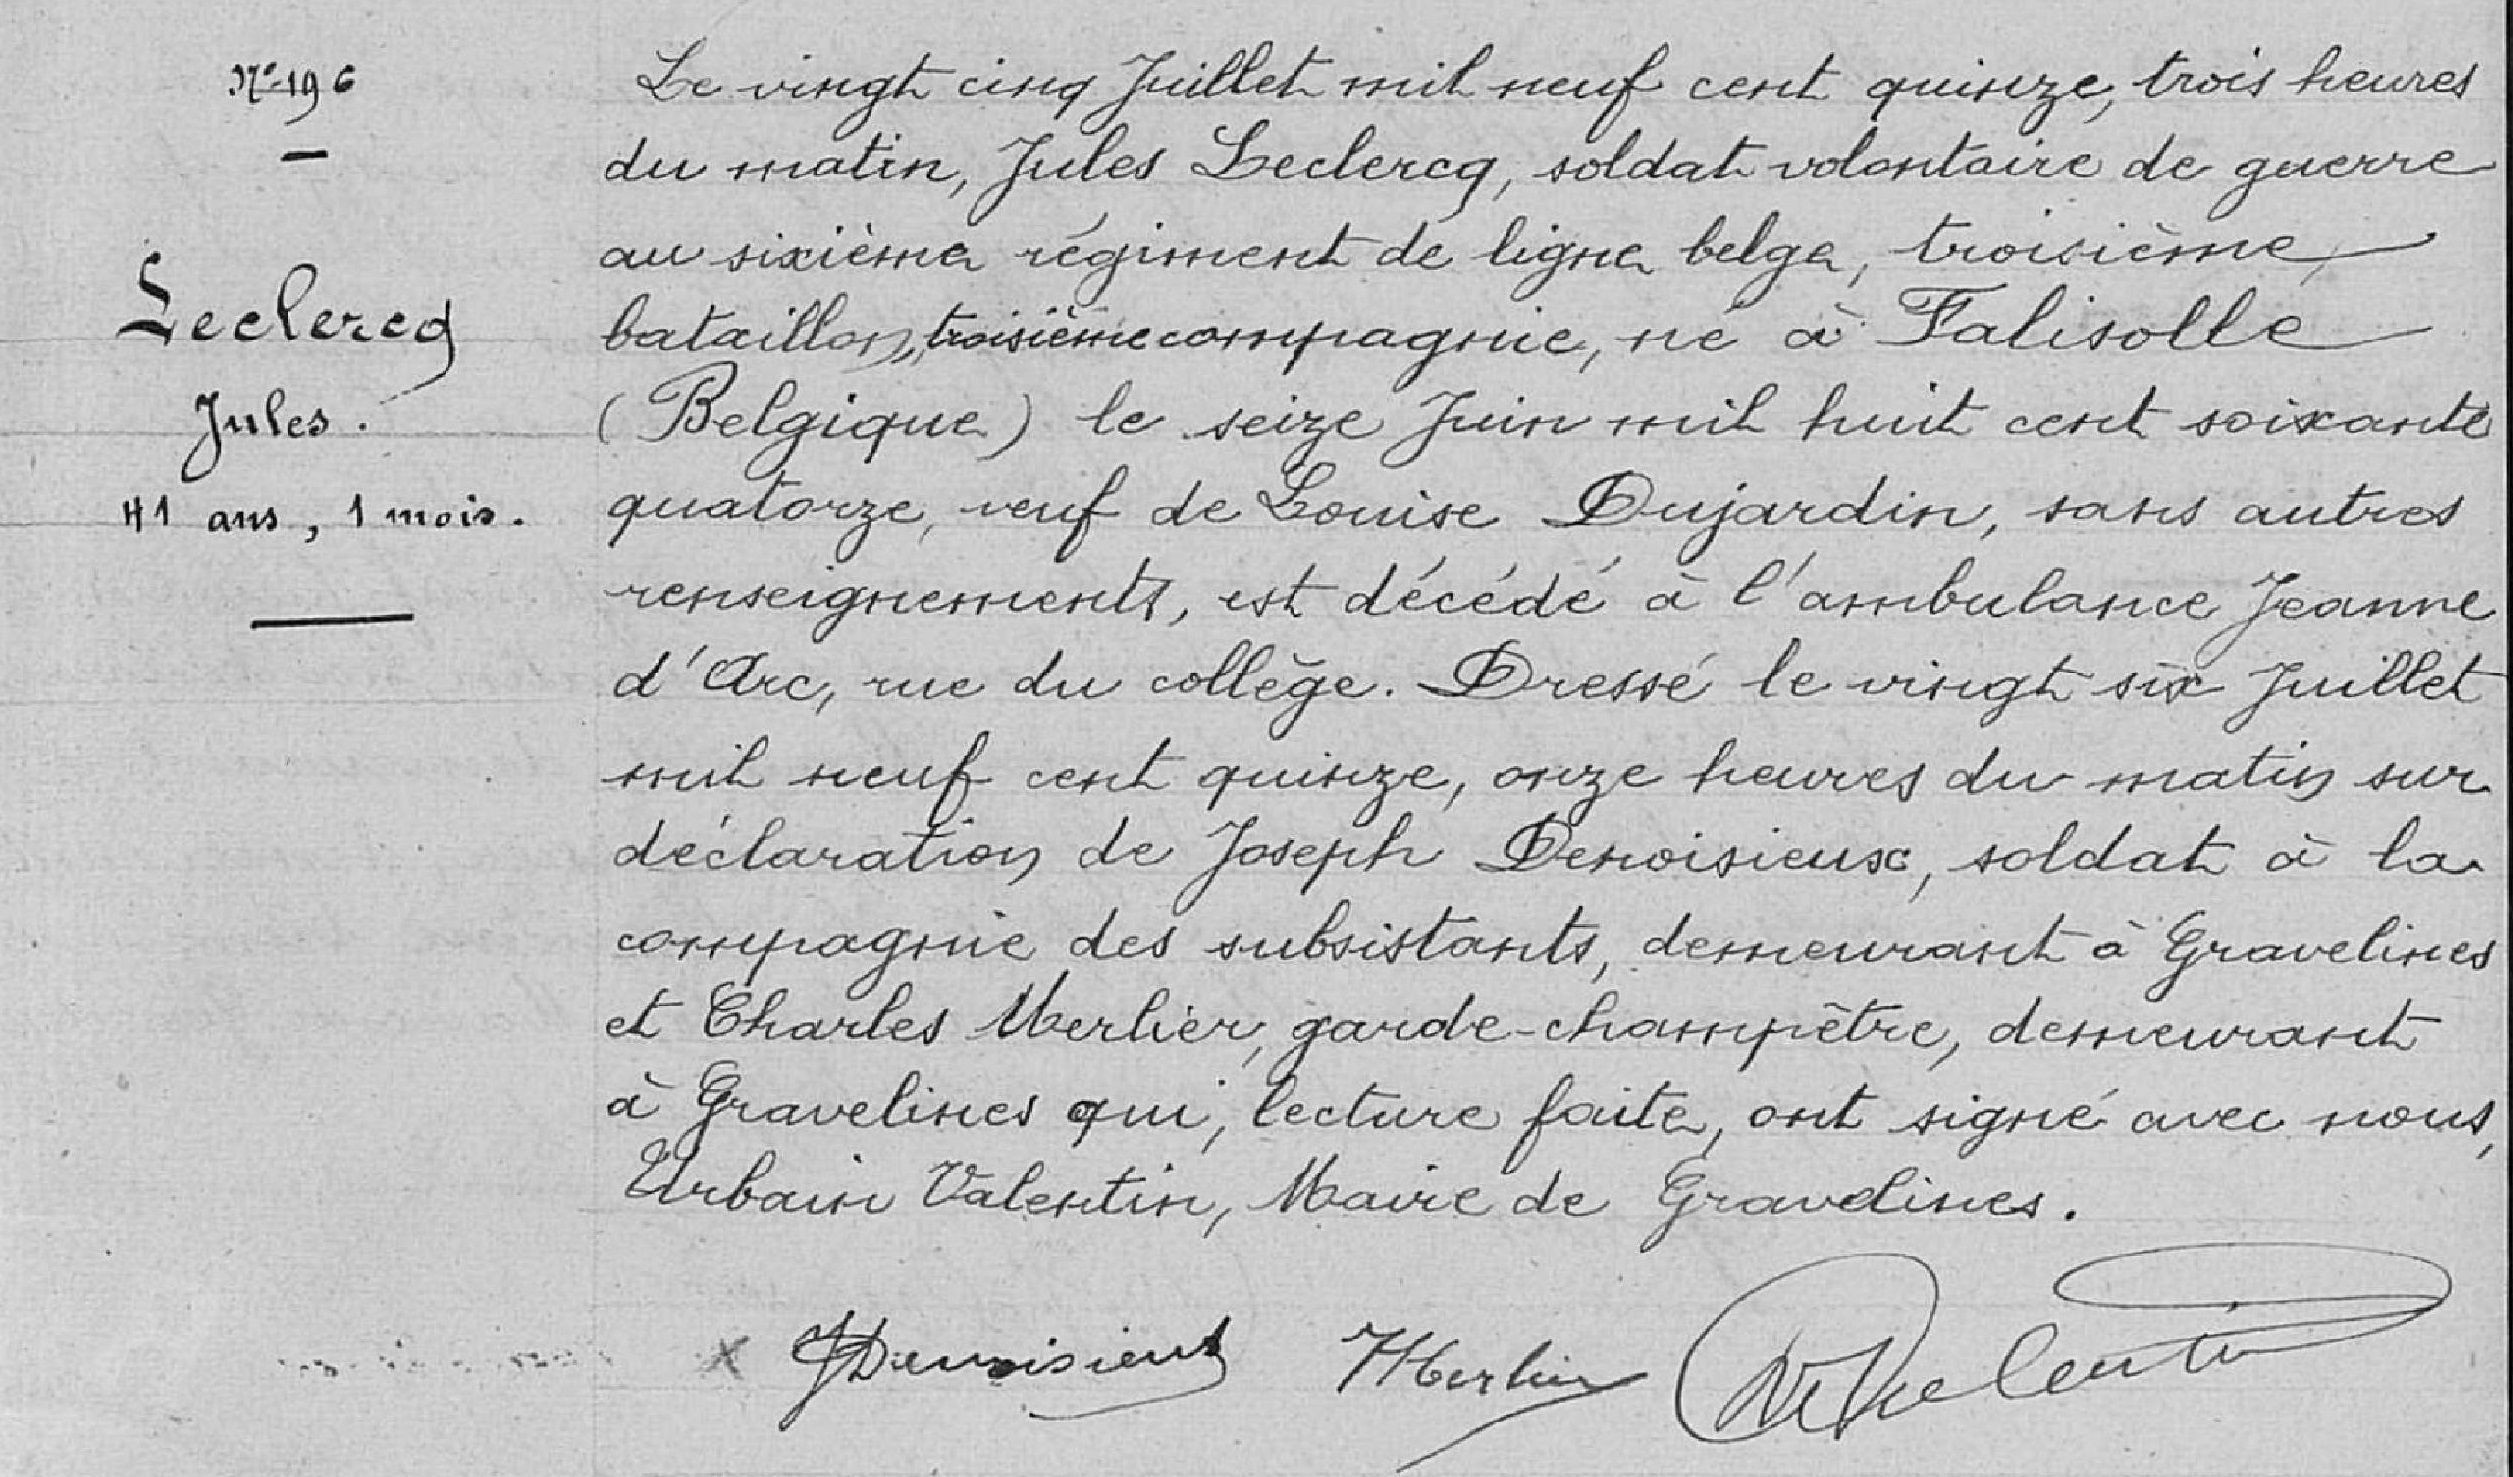 N° 196
Leclercq
Jules.
41 ans, 1 mois.
Le vingt cinq Juillet mil neuf cent quinze, trois heures
du matin, Jules Leclercq, soldat volontaire de guerre
au sixième régiment de ligne belge, troisième
bataillon, troisième compagnie, né à Falisolle
(Belgique) le seize Juin mil huit cent soixante
quatorze, veuf de Louise Dujardin, sans autres
renseignements, est décédé à l'ambulance Jeanne
d'Arc, rue du collège. Dressé le vingt six Juillet
mil neuf cent quinze, onze heures du matin sur
déclaration de Joseph Denoisieux, soldat à la
compagnie des subsistants, demeurant à Gravelines
et Charles Merlier, garde-champêtre, demeurant
à Gravelines qui, lecture faite, ont signé avec nous,
Urbain Valentin, Maire de Gravelines.
JDenoisieux Merlier UValentin